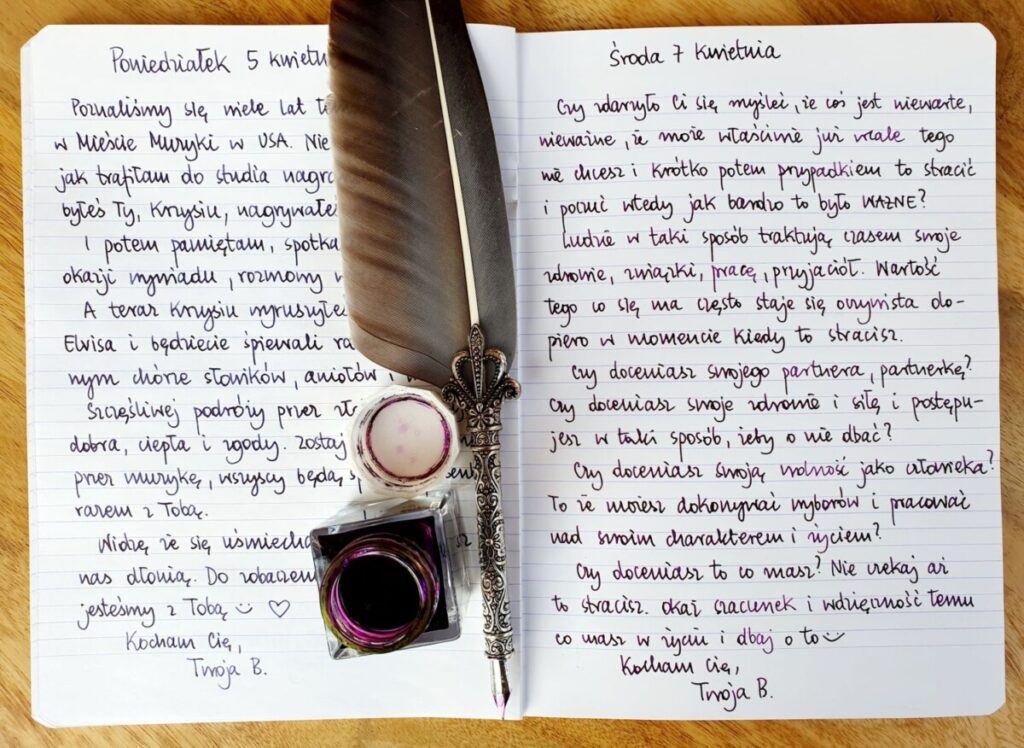 Poniedziałek 5 kwietn
Poznaliśmy się wiele lat te
w Mieście Muzyki w USA. Nie
jak trafiłam do studia nagra
byłeś Ty, Krzysiu, nagrywałe
I potem pamiętam, spotka
okazji wywiadu, rozmowy w
A teraz Krzysiu wyruszyłe
Elvisa i będziecie śpiewali ra
nym chórze słowików, aniołów i
Szczęśliwej podróży przez
dobra, ciepła i zgody. Zostaj
przez muzykę, wszyscy będą
razem z Tobą.
Widzę że się uśmiecha
nas dłonią. Do zobaczen
jesteśmy z Tobą
Kocham Cię,
Twoja B.
Środa 7 kwietnia
Czy zdarzyło Ci się myśleć, że coś jest niewarte,
nieważne, że może właściwie już wcale tego
nie chcesz i krótko potem przypadkiem to stracić
i poczuć wtedy jak bardzo to było WAŻNE?
Ludzie w taki sposób traktują czasem swoje
zdrowie, związki, pracę, przyjaciół. Wartość
tego co się ma często staje się oczywista do-
piero w momencie kiedy to stracisz.
Czy doceniasz swojego partnera, partnerkę?
Czy doceniasz swoje zdrowie i siłę i postępu-
jesz w taki sposób, żeby o nie dbać?
Czy doceniasz swoją wolność jako człowieka?
To że możesz dokonywać wyborów i pracować
nad swoim charakterem i życiem?
Czy doceniasz to co masz? Nie czekaj aż
to stracisz. Okaż szacunek i wdzięczność temu
co masz w życiu i dbaj o to
Kocham Cię,
Twoja B.